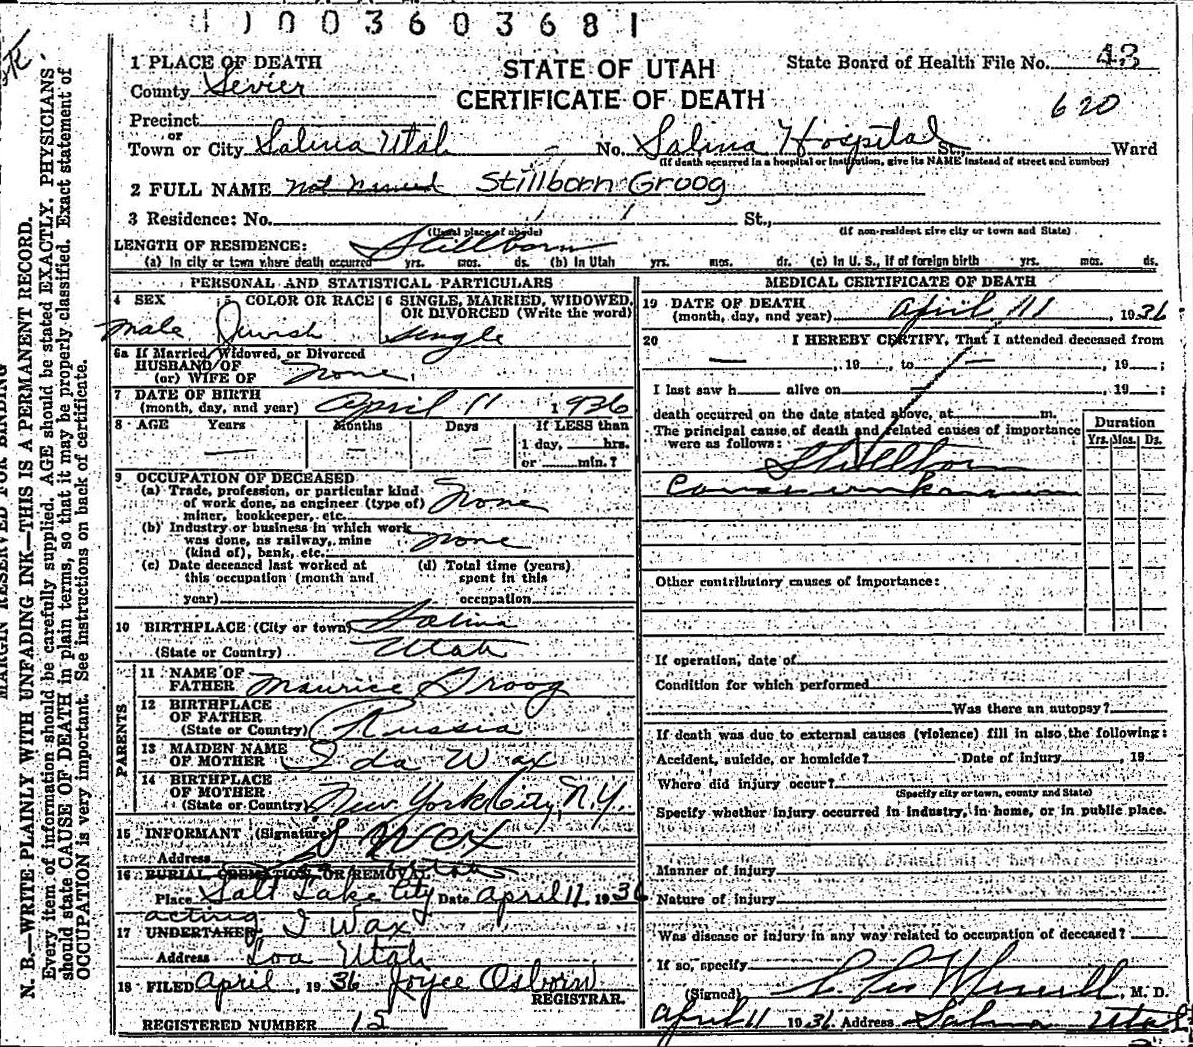 0003603681
1 PLACE OF DEATH
STATE OF UTAH
State Board of Health File No. 43
County Sevier
CERTIFICATE OF DEATH
620
Precinct
or
Town or City Salina Utah No. Salina Hospital St., Ward
(If death occurred in a hospital or institution, give its NAME instead of street and number)
2 FULL NAME not named Stillborn Groog
3 Residence: No. St.,
(Usual place of abode) (If non-resident give city or town and State)
LENGTH OF RESIDENCE: Stillborn
(a) In city or town where death occurred yrs. mos. ds. (b) In Utah yrs. mos. ds. (c) In U. S., if of foreign birth yrs. mos. ds.
PERSONAL AND STATISTICAL PARTICULARS
4 SEX 5 COLOR OR RACE 6 SINGLE, MARRIED, WIDOWED, OR DIVORCED (Write the word)
male Jewish single
6a If Married, Widowed, or Divorced
HUSBAND OF
(or) WIFE OF none
7 DATE OF BIRTH
(month, day, and year) April 11 1936
8 AGE Years Months Days If LESS than
1 day, hrs.
or min.?
9 OCCUPATION OF DECEASED
(a) Trade, profession, or particular kind
of work done, as engineer (type of) none
miner, bookkeeper, etc.
(b) Industry or business in which work
was done, as railway, mine none
(kind of), bank, etc.
(c) Date deceased last worked at (d) Total time (years)
this occupation (month and spent in this
year) occupation
10 BIRTHPLACE (City or town) Salina
(State or Country) Utah
PARENTS
11 NAME OF
FATHER Maurice Groog
12 BIRTHPLACE
OF FATHER
(State or Country) Russia
13 MAIDEN NAME
OF MOTHER Ida Wax
14 BIRTHPLACE
OF MOTHER
(State or Country) New York City, N.Y.
15 INFORMANT (Signature) S Wax
Address
16 BURIAL, CREMATION, OR REMOVAL
Place Salt Lake City Date April 11, 1936
acting
17 UNDERTAKER I Wax
Address Loa Utah
18 FILED April, 1936 Joyce Osborn
REGISTRAR.
REGISTERED NUMBER 15
MEDICAL CERTIFICATE OF DEATH
19 DATE OF DEATH
(month, day, and year) April 11, 1936
20 I HEREBY CERTIFY, That I attended deceased from
, 19 , to , 19 ;
I last saw h alive on , 19 ;
death occurred on the date stated above, at m.
The principal cause of death and related causes of importance
were as follows:
Duration
Yrs. Mos. Ds.
Stillborn
cause unknown
Other contributory causes of importance:
If operation, date of
Condition for which performed
Was there an autopsy?
If death was due to external causes (violence) fill in also the following:
Accident, suicide, or homicide? Date of injury , 19
Where did injury occur?
(Specify city or town, county and State)
Specify whether injury occurred in industry, in home, or in public place.
Manner of injury
Nature of injury
Was disease or injury in any way related to occupation of deceased?
If so, specify
(Signed) Merrill, M. D.
April 11 1936 Address Salina Utah
MARGIN RESERVED FOR BINDING
N. B.—WRITE PLAINLY WITH UNFADING INK—THIS IS A PERMANENT RECORD.
Every item of information should be carefully supplied. AGE should be stated EXACTLY. PHYSICIANS
should state CAUSE OF DEATH in plain terms, so that it may be properly classified. Exact statement of
OCCUPATION is very important. See instructions on back of certificate.